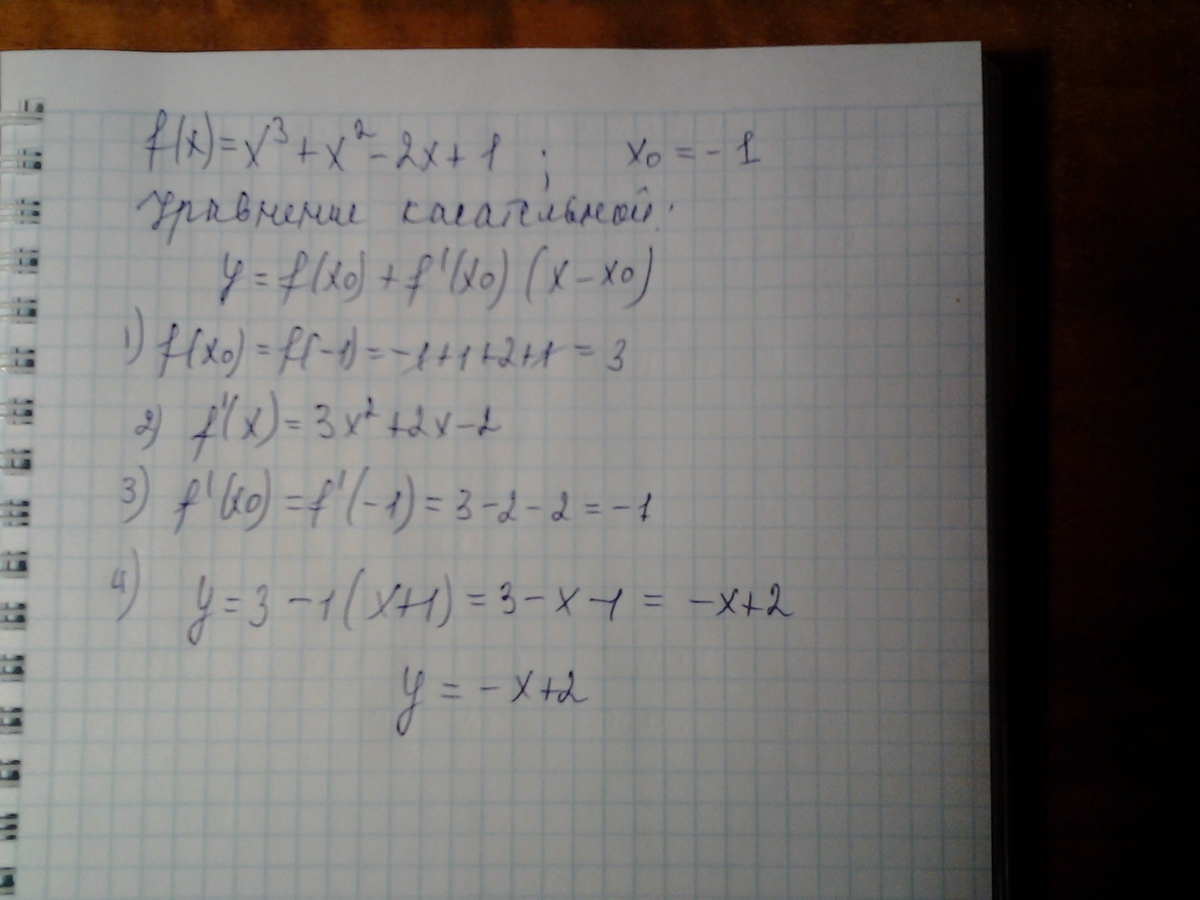 f(x)=x³+x²-2x+1 ; x₀=-1
Уравнение касательной:
y=f(x₀)+f'(x₀)(x-x₀)
1) f(x₀)=f(-1)=-1+1+2+1=3
2) f'(x)=3x²+2x-2
3) f'(x₀)=f'(-1)=3-2-2=-1
4) y=3-1(x+1)=3-x-1=-x+2
y=-x+2